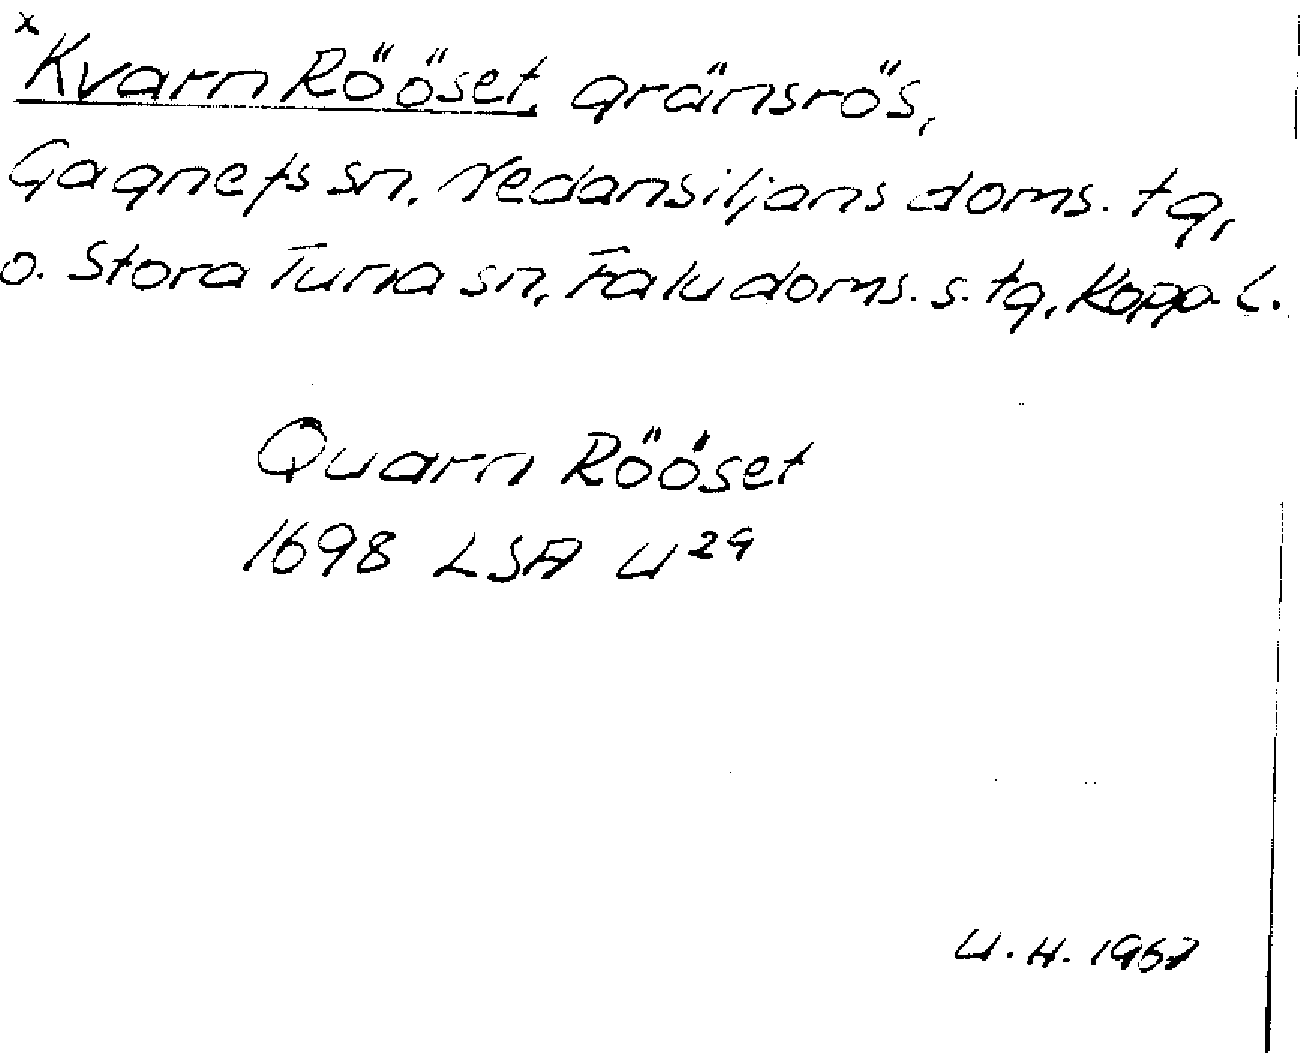 x Kvarn Rööset, gränsrös,
Gagnefs sn. Nedansiljans doms. tg,
o. Stora Tuna sn, Falu doms. s. tg, Kopp. L.
Quarn Rööset
1698 LSA U 29
U. H. 1967